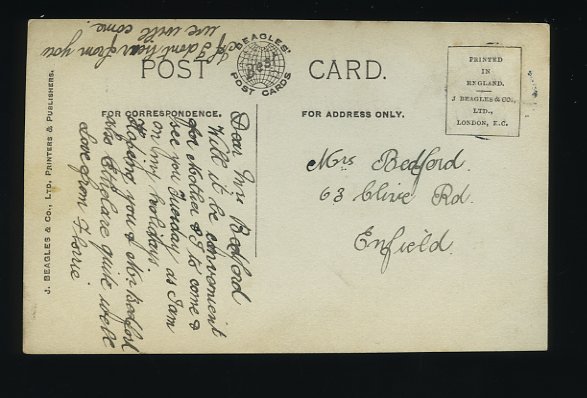 POST CARD.
BEAGLES'
POST CARDS
FOR CORRESPONDENCE.
FOR ADDRESS ONLY.
PRINTED
IN
ENGLAND.
J BEAGLES & CO.,
LTD.,
LONDON, E.C.
J. BEAGLES & CO., LTD., PRINTERS & PUBLISHERS.
Dear Mrs Bedford
Will it be convenient
for Mother & I to come &
see you Tuesday as I am
on my holidays.
Hoping you & Mr Bedford
are quite well
Love from Florrie.
If I dont hear from you
we will come.
Mrs Bedford.
63 Clive Rd.
Enfield.